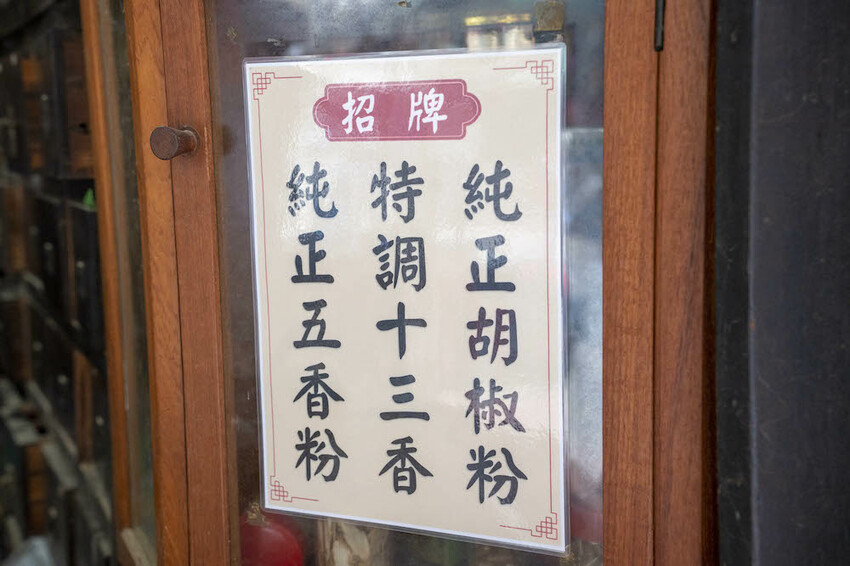 招牌
純正胡椒粉
特調十三香
純正五香粉